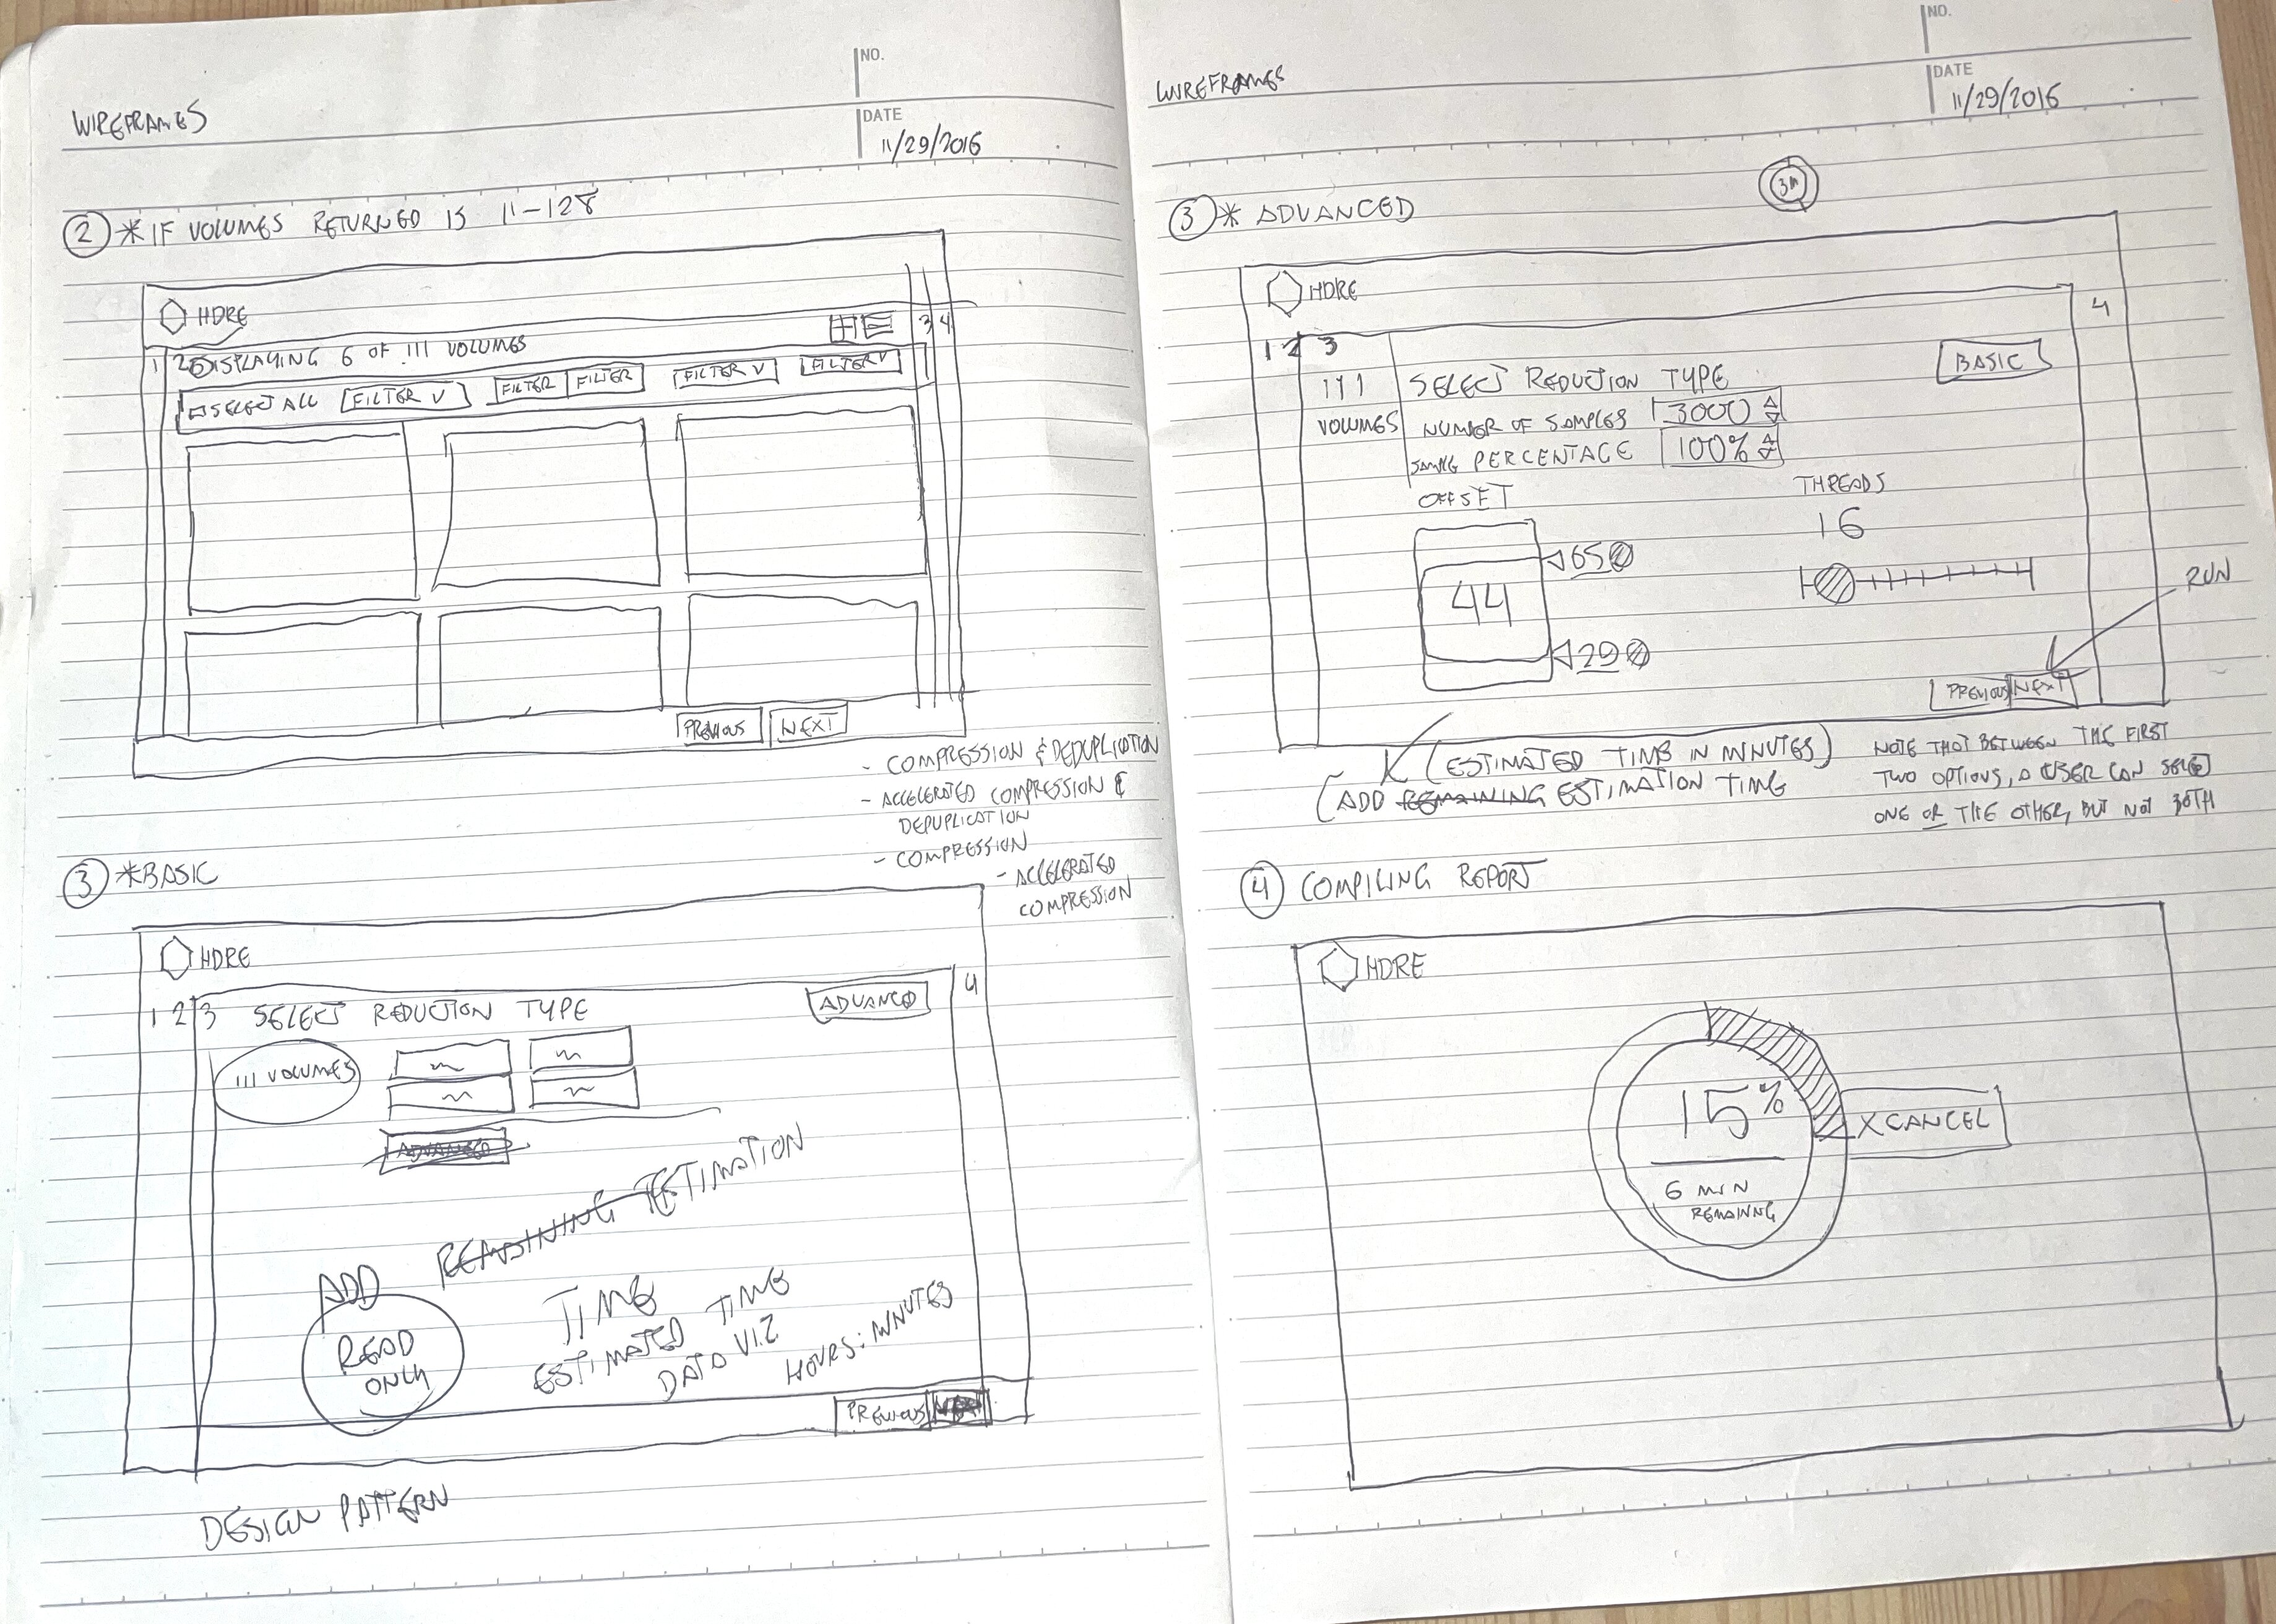 WIREFRAMES
NO.
DATE
11/29/2016
2 * IF VOLUMES RETURNED IS 11-128
HDRE
3 4
1 2 DISPLAYING 6 OF 111 VOLUMES
SELECT ALL FILTER V FILTER FILTER FILTER V FILTER V
PREVIOUS NEXT
- COMPRESSION & DEDUPLICATION
- ACCELERATED COMPRESSION &
DEDUPLICATION
- COMPRESSION
- ACCELERATED
COMPRESSION
3 * BASIC
HDRE
1 2 3 SELECT REDUCTION TYPE ADVANCED 4
111 VOLUMES
ADVANCED
ADD REMAINING ESTIMATION
TIME
READ
ONLY
ESTIMATED TIME
DATA VIZ
HOURS: MINUTES
PREVIOUS
DESIGN PATTERN
WIREFRAMES
NO.
DATE
11/29/2016
3 * ADVANCED
HDRE
1 2 3 4
111
VOLUMES
SELECT REDUCTION TYPE BASIC
NUMBER OF SAMPLES 3000
PERCENTAGE 100%
OFFSET
THREADS
16
65
44
29
RUN
PREVIOUS NEXT
(ESTIMATED TIME IN MINUTES)
(ADD REMAINING ESTIMATION TIME
NOTE THAT BETWEEN THE FIRST
TWO OPTIONS, A USER CAN SELECT
ONE OR THE OTHER, BUT NOT BOTH
4 COMPILING REPORT
HDRE
15%
6 MIN
REMAINING
X CANCEL